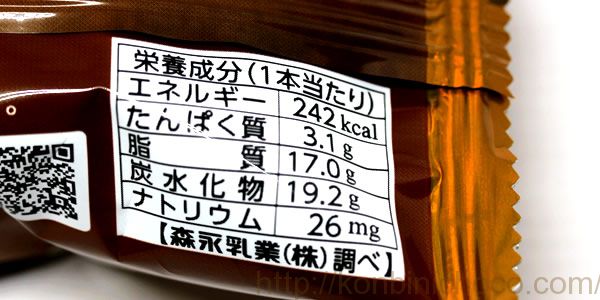 栄養成分(1本当たり)
エネルギー 242kcal
たんぱく質 3.1g
脂質 17.0g
炭水化物 19.2g
ナトリウム 26mg
【森永乳業(株)調べ】